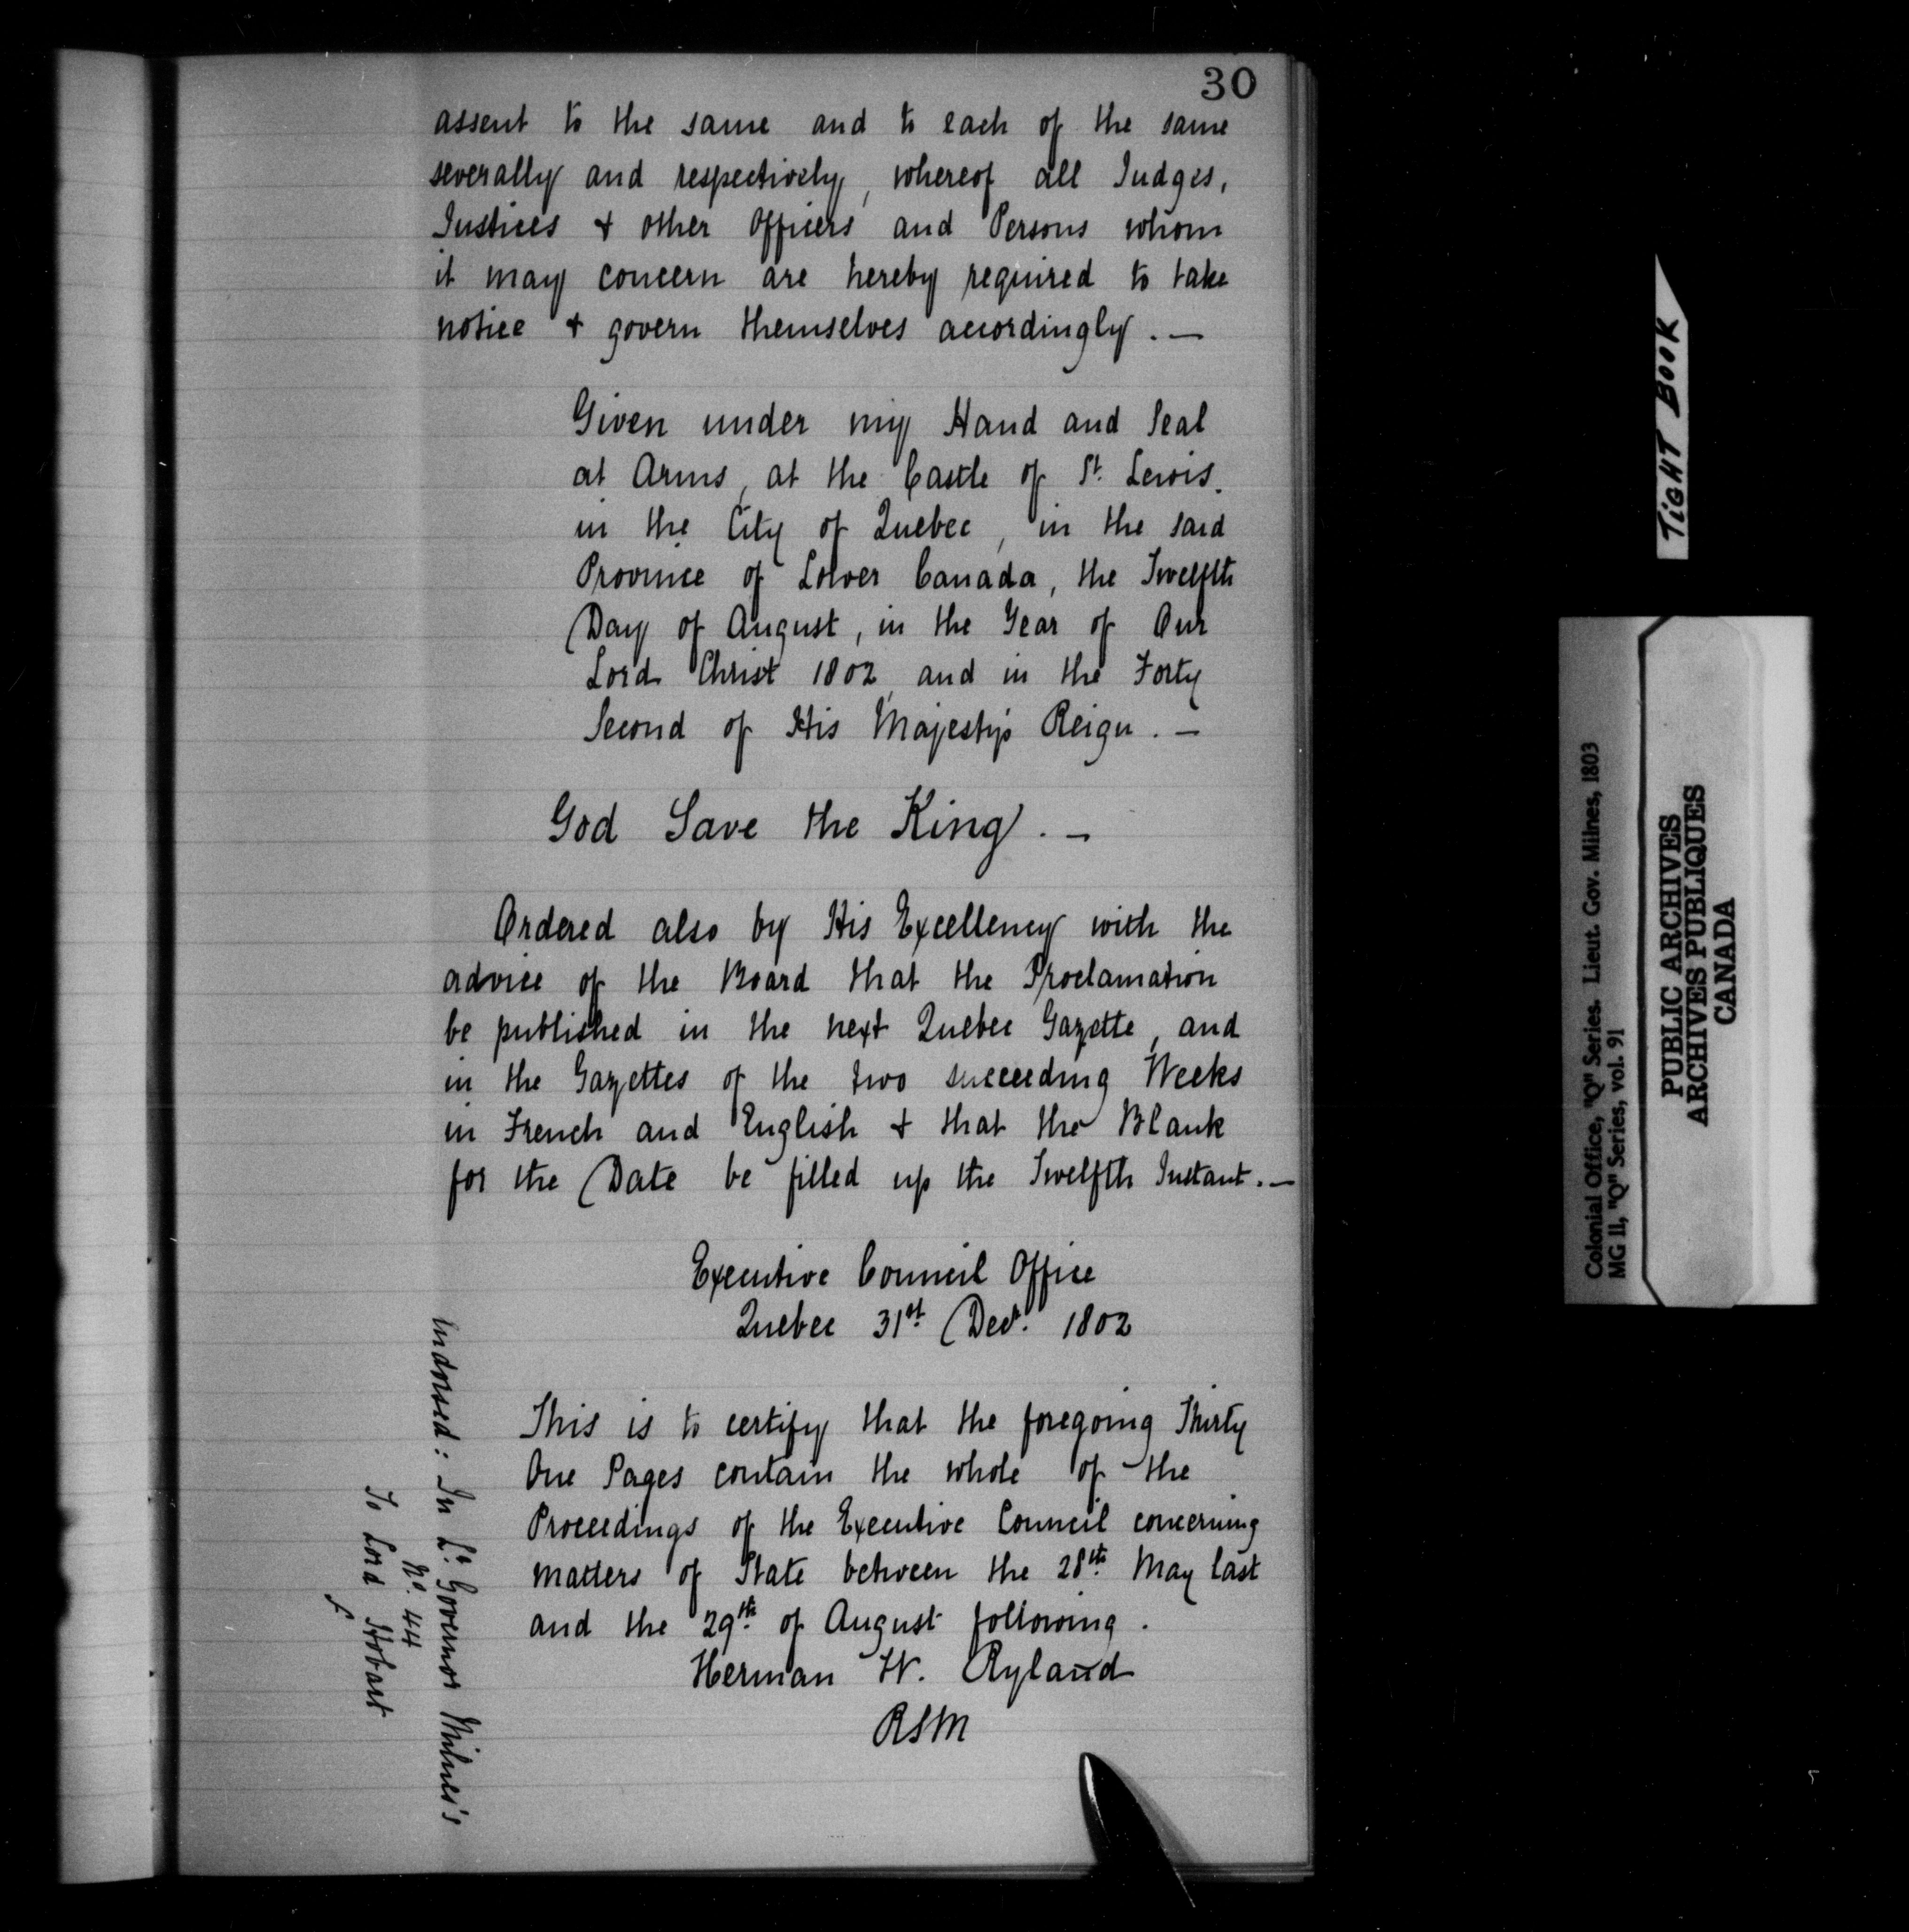 30
assent to the same and to each of the same
severally and respectively, whereof all Judges,
Justices & other Officers and Persons whom
it may concern are hereby required to take
notice & govern themselves accordingly. —
Given under my Hand and Seal
at Arms, at the Castle of St. Lewis.
in the City of Quebec, in the said
Province of Lower Canada, the Twelfth
Day of August, in the Year of Our
Lord Christ 1802, and in the Forty
Second of His Majesty's Reign. —
God Save the King. —
Ordered also by His Excellency with the
advice of the Board that the Proclamation
be published in the next Quebec Gazette, and
in the Gazettes of the two succeeding Weeks
in French and English & that the Blank
for the Date be filled up the Twelfth Instant. —
Executive Council Office
Quebec 31st Decr. 1802
This is to certify that the foregoing Thirty
One Pages contain the whole of the
Proceedings of the Executive Council concerning
matters of State between the 28th. May last
and the 29th. of August following.
Herman W. Ryland
RSM
Indorsed: In Lt. Governor Milnes's
No. 44
To Lord Hobart
TIGHT BOOK
Colonial Office, "Q" Series. Lieut. Gov. Milnes, 1803
MG 11, "Q" Series, vol. 91
PUBLIC ARCHIVES
ARCHIVES PUBLIQUES
CANADA